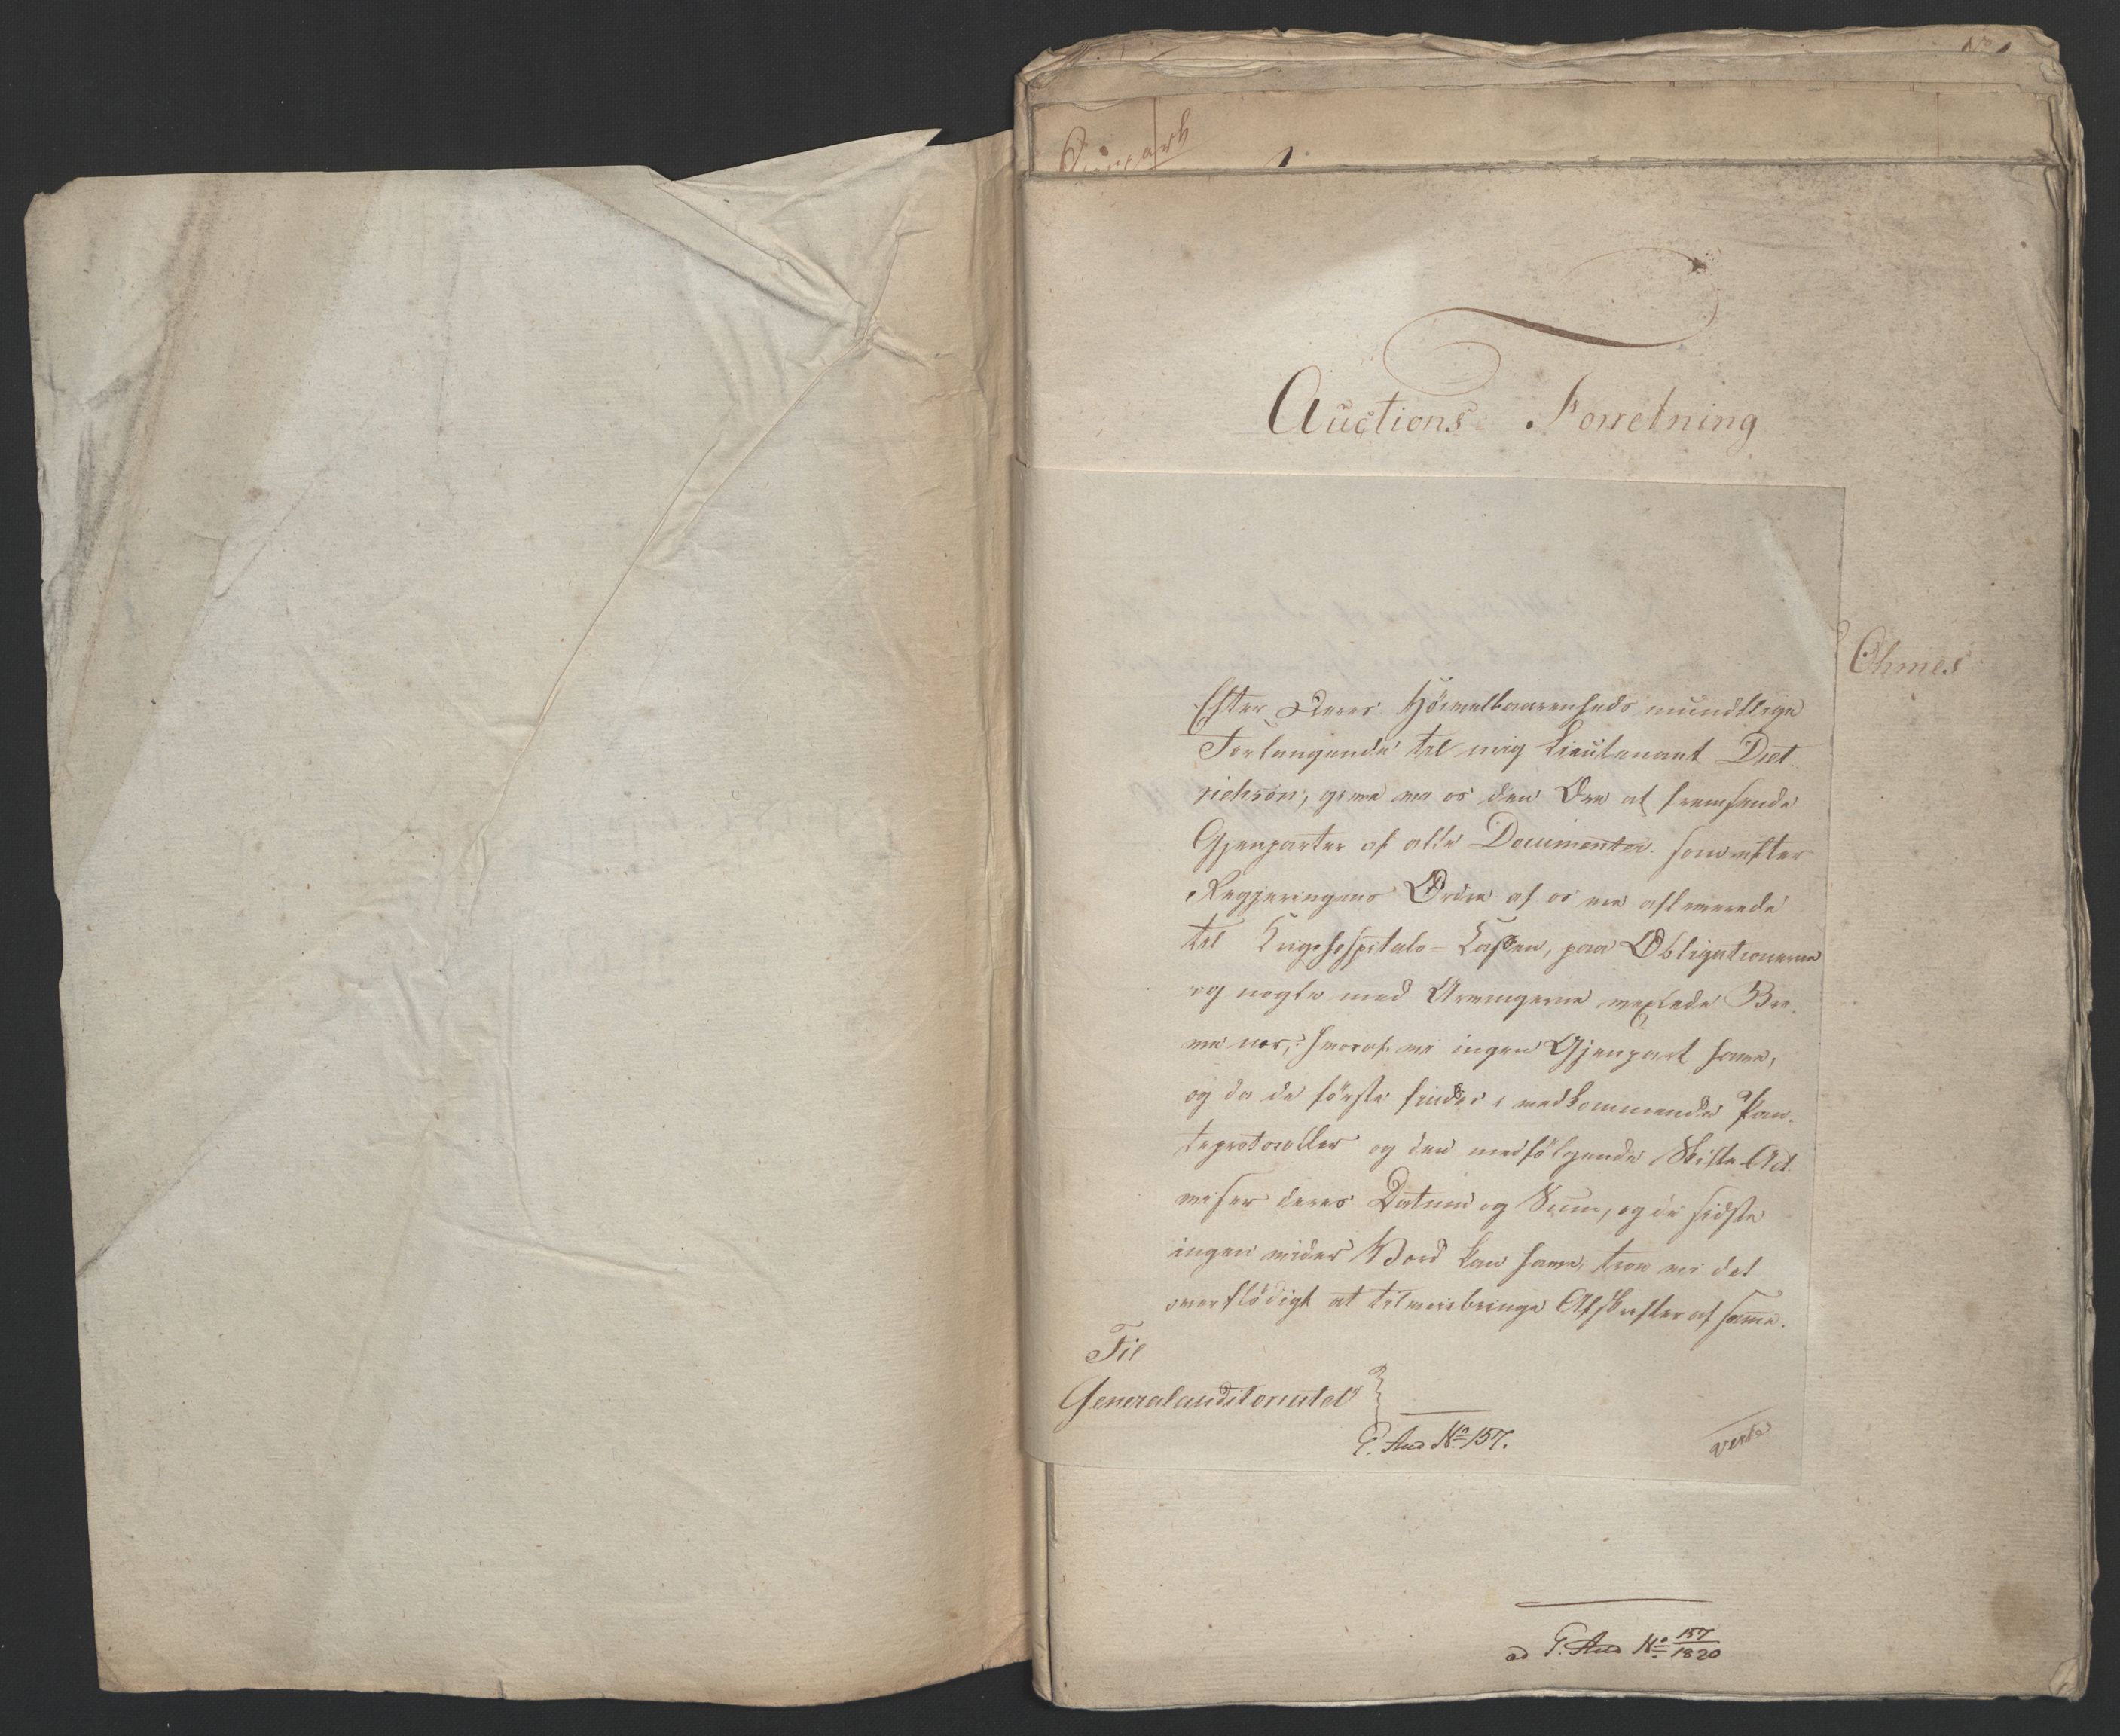 No 1
1.
Auctions Forretning
Ohmes
Efter Deres Höivelbaarenheds mundtlige
Forlangende til mig Lieutenant Diet-
richson, give vi os den Ære at fremsende
Gjenparter af alle Documenter som efter
Regjeringens Ordre af os ere afleverede
til Krigshospitals-Cassen, paa Obligationerne
og nogle med Arvingerne vexlede Bre-
ve nær, hvoraf vi ingen Gjenpart have,
og da de förste findes i vedkommende Pan-
teprotocoller og den medfölgende Skifte Act
viser deres Datum og Sum, og de sidste
ingen videre Værd kan have, troe vi det
overflödigt at tilveiebringe Afskrifter af same.
Til
Generalauditoriatet
G. Aud No 157.
verte
ad G. Aud No 157/1820